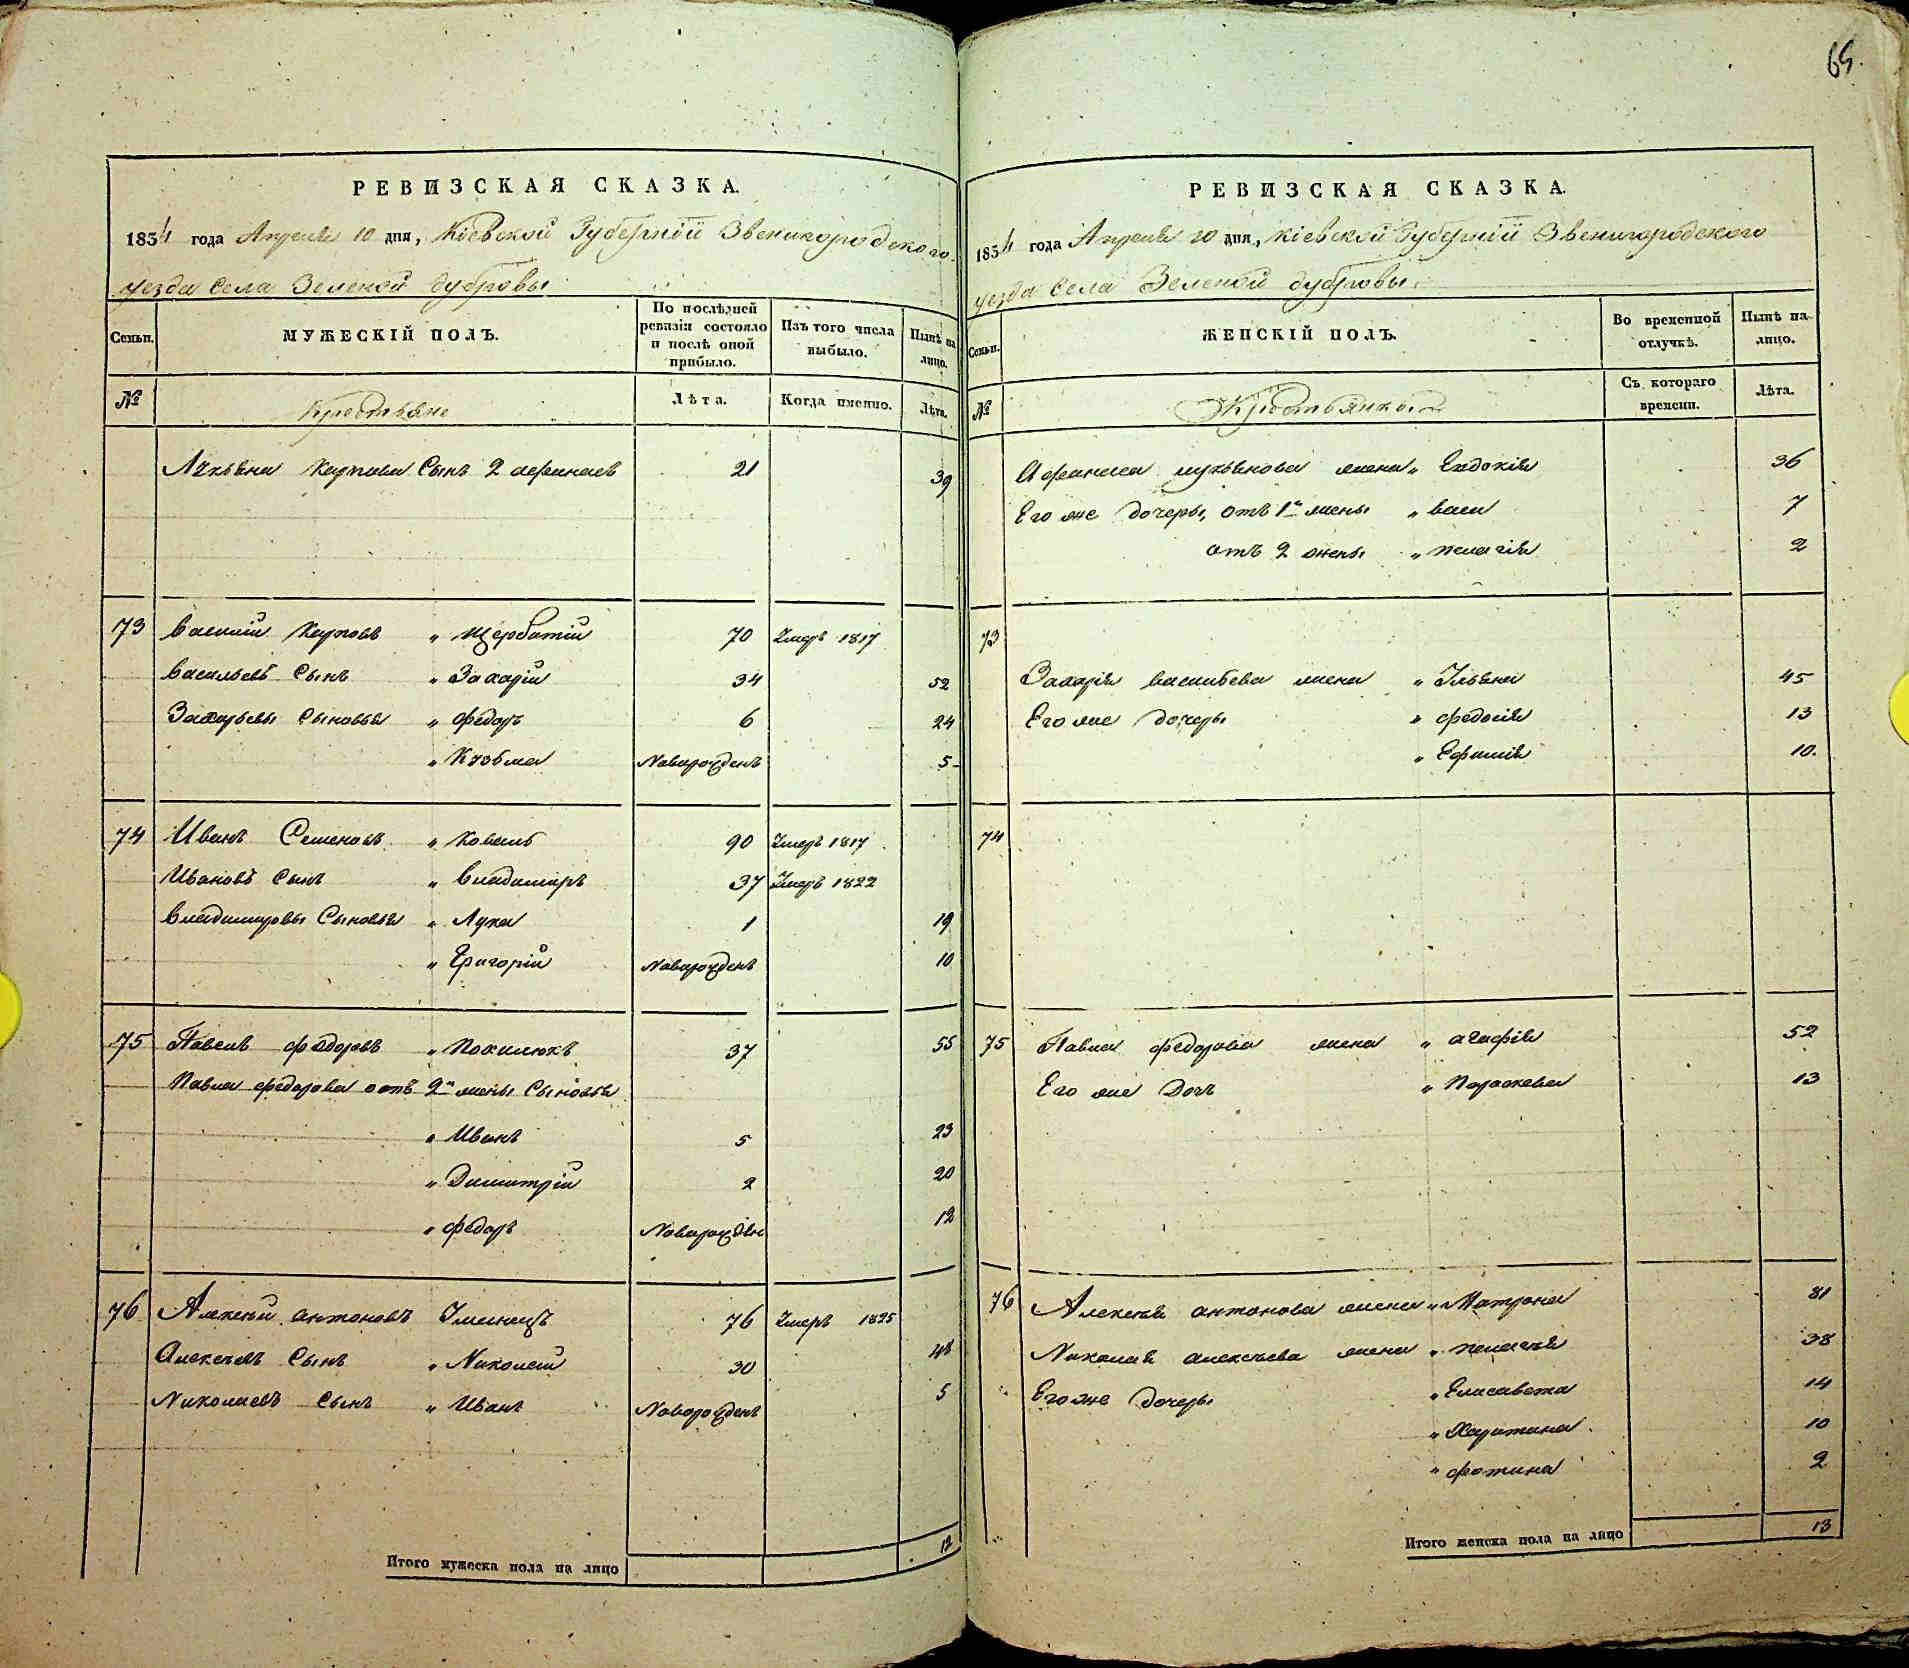 65.
РЕВИЗСКАЯ СКАЗКА.
1834 года Апреля 10 дня, Кіевской Губерніи Звенигородского
уезда Села Зеленой дубровы
Семьи.
МУЖЕСКІЙ ПОЛЪ.
По послѣдней ревизіи состояло и послѣ оной прибыло.
Изъ того числа выбыло.
Нынѣ на лицо.
№
Крестьяне
Лѣта.
Когда именно.
Лѣта.
Лукьяна Карпова Сынъ 2 афанасъ 21 39
73 Василій Карповъ " Щербатій 70 Умеръ 1817
Васильевъ Сынъ " Захарій 34 52
Захарьевы Сыновья " федоръ 6 24
" Кузьма Новорожденъ 5
74 Иванъ Семеновъ " Коваль 90 Умеръ 1817
Ивановъ Сынъ " Владимиръ 37 Умеръ 1822
Владимировы Сыновья " Лука 1 19
" Григорій Новорожденъ 10
75 Павелъ федоровъ " Похилюкъ 37 55
Павла федорова отъ 2й жены Сыновья
" Иванъ 5 23
" Димитрій 2 20
" федоръ Новорожден 12
76 Алексѣй антоновъ Уманецъ 76 Умеръ 1825
Алексѣевъ Сынъ " Николай 30 48
Николаевъ Сынъ " Иванъ Новорожденъ 5
Итого мужеска пола на лицо 12
РЕВИЗСКАЯ СКАЗКА.
1834 года Апреля 10 дня, Кіевской Губерніи Звенигородского
уезда Села Зеленой дубровы
Семьи.
ЖЕНСКІЙ ПОЛЪ.
Во временной отлучкѣ.
Нынѣ на лицо.
№
Крестьянки
Съ котораго времени.
Лѣта.
Афанаса лукьянова жена " Евдокія 36
Его же дочеры, отъ 1й жены " васа 7
отъ 2 жены " пелагія 2
73
Захарія васильева жена " Ульяна 45
Его же дочеры " федосія 13
" Ефимія 10.
74
75 Павла федорова жена " агафія 52
Его же Дочъ " Параскева 13
76 Алексѣя антонова жена " Матрона 81
Николая алексѣева жена " пелагѣя 38
Его же дочеры " Елисавета 14
" Харитина 10
" фотина 2
Итого женска пола на лицо 13